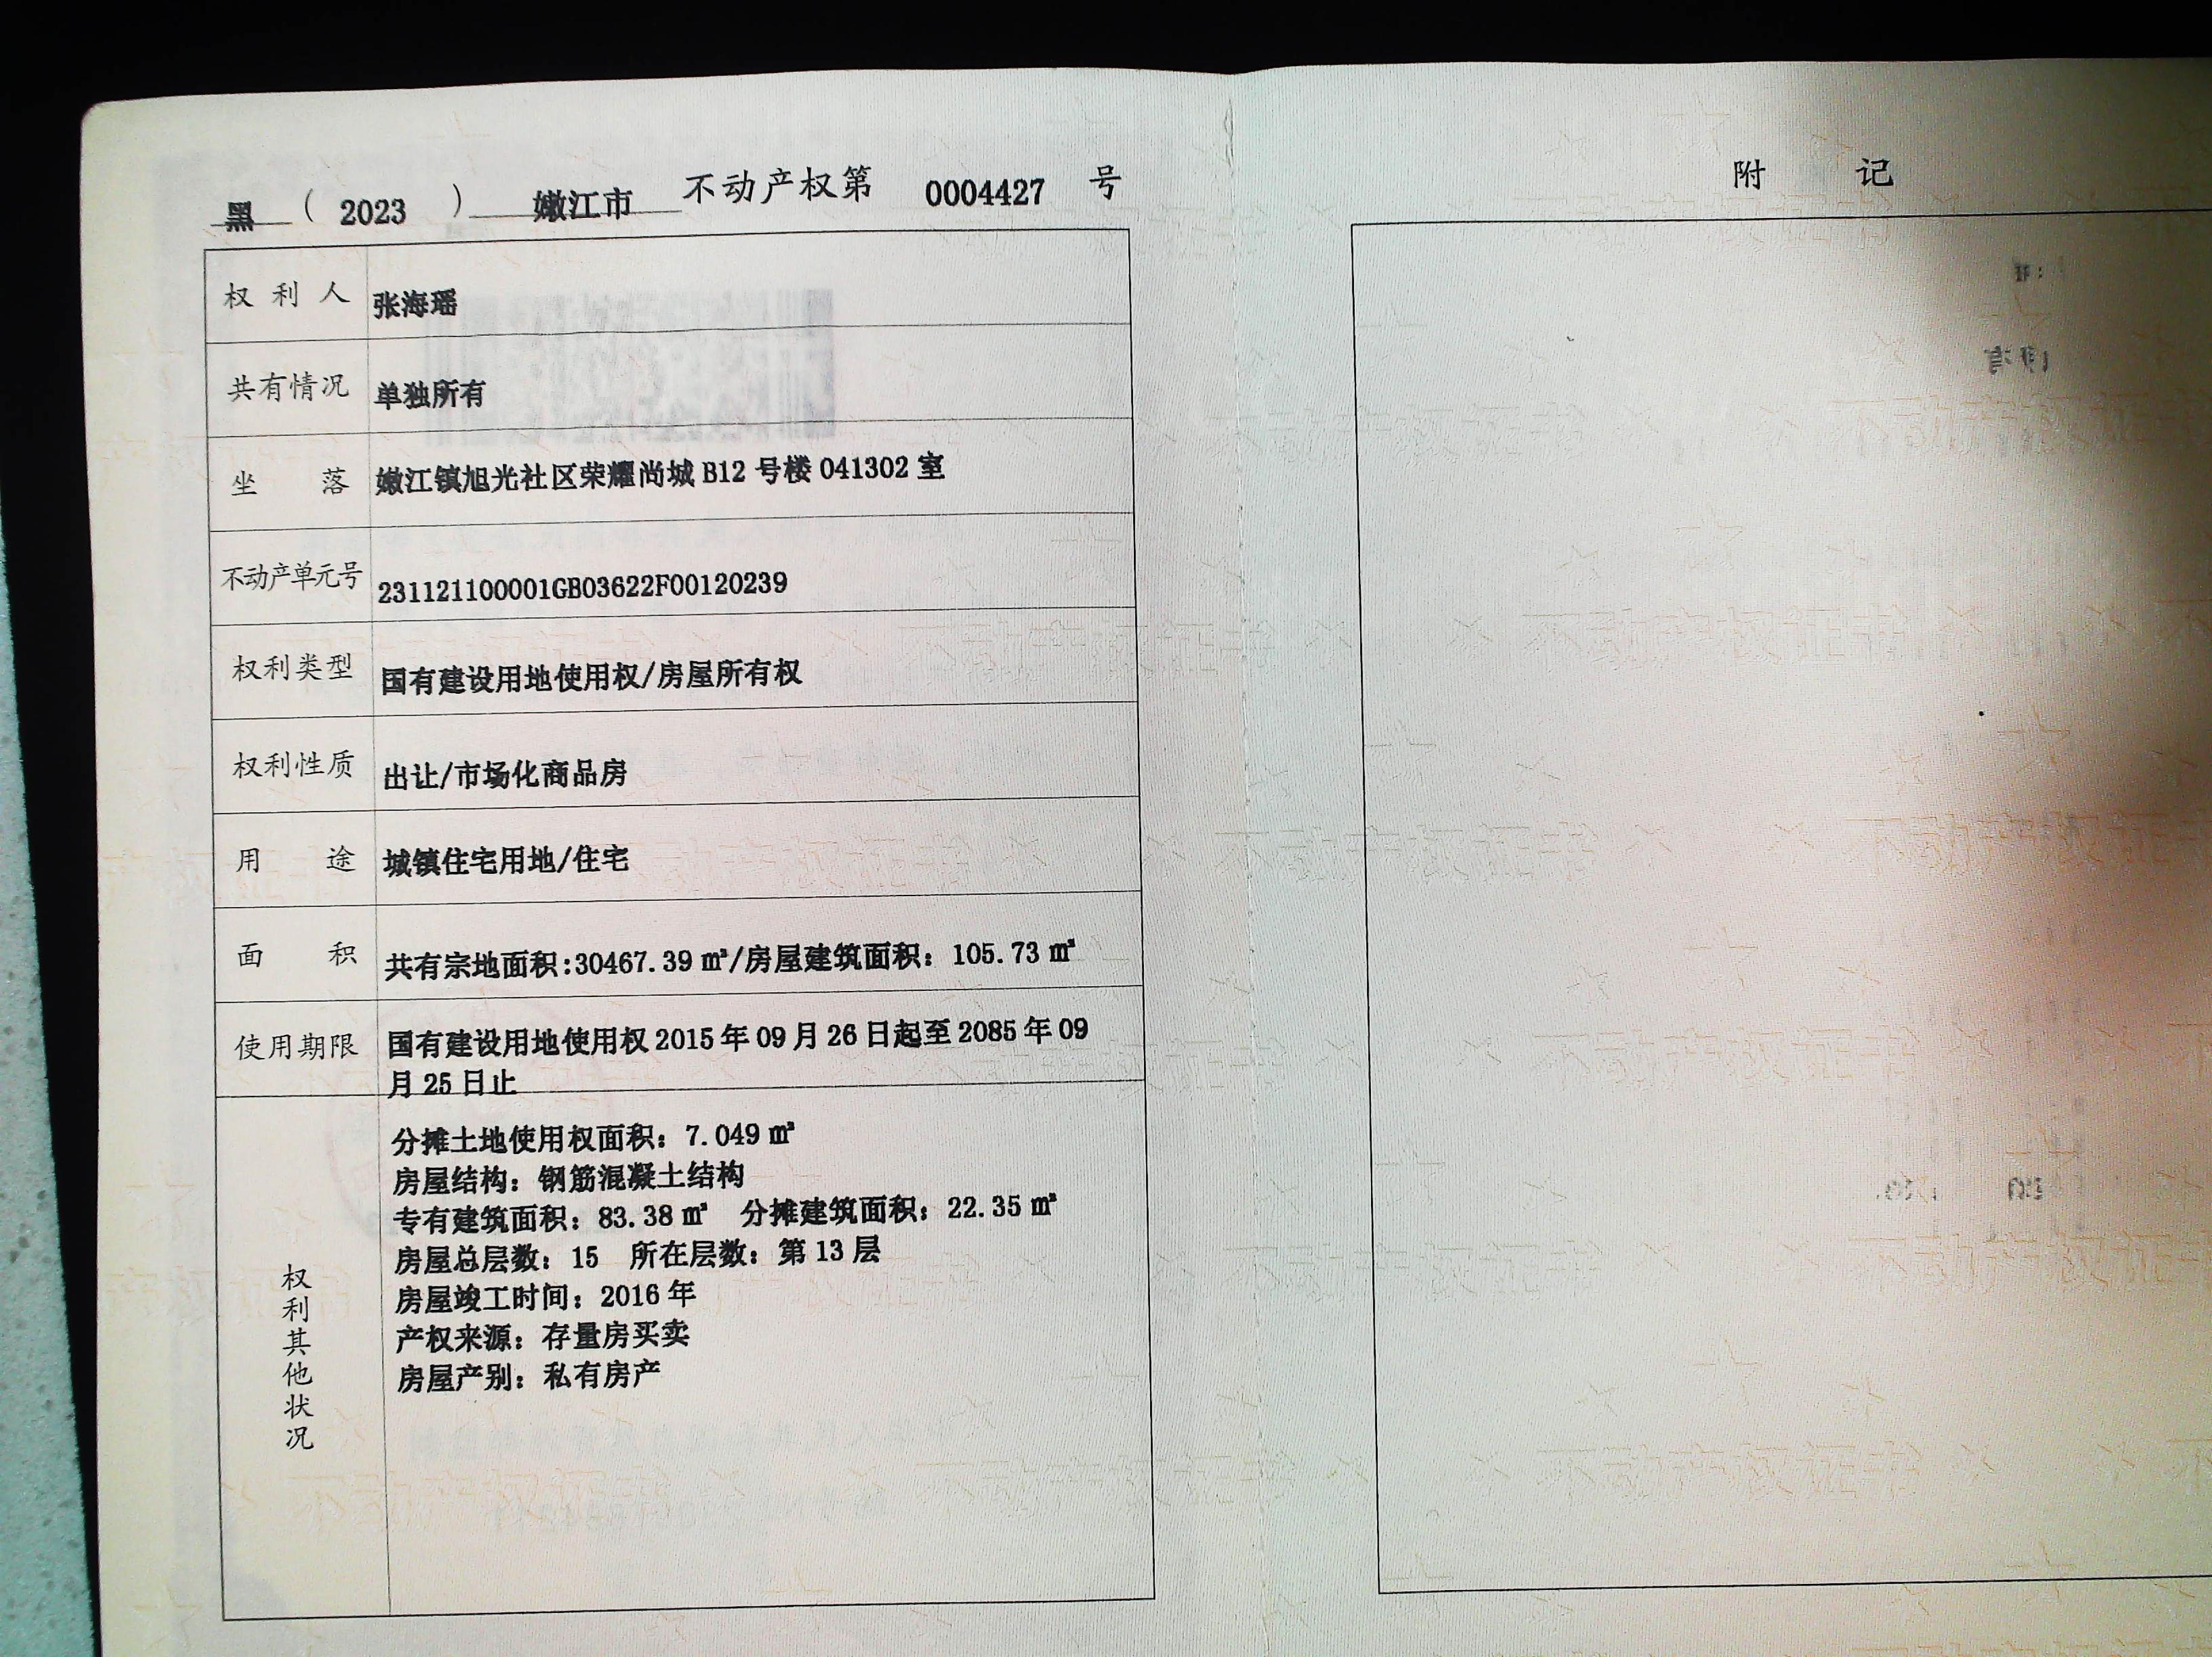 黑（2023）嫩江市 不动产权第 0004427 号
权利人 张海瑶
共有情况 单独所有
坐落 嫩江镇旭光社区荣耀尚城 B12 号楼 041302 室
不动产单元号 231121100001GB03622F00120239
权利类型 国有建设用地使用权/房屋所有权
权利性质 出让/市场化商品房
用途 城镇住宅用地/住宅
面积 共有宗地面积:30467.39 ㎡/房屋建筑面积：105.73 ㎡
使用期限 国有建设用地使用权 2015 年 09 月 26 日起至 2085 年 09
月 25 日止
权利其他状况
分摊土地使用权面积：7.049 ㎡
房屋结构：钢筋混凝土结构
专有建筑面积：83.38 ㎡ 分摊建筑面积：22.35 ㎡
房屋总层数：15 所在层数：第 13 层
房屋竣工时间：2016 年
产权来源：存量房买卖
房屋产别：私有房产
附记